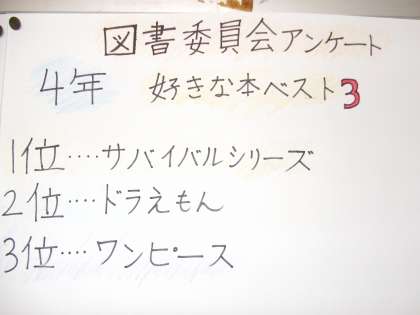 図書委員会アンケート
4年 好きな本ベスト3
1位‥‥サバイバルシリーズ
2位‥‥ドラえもん
3位‥‥ワンピース